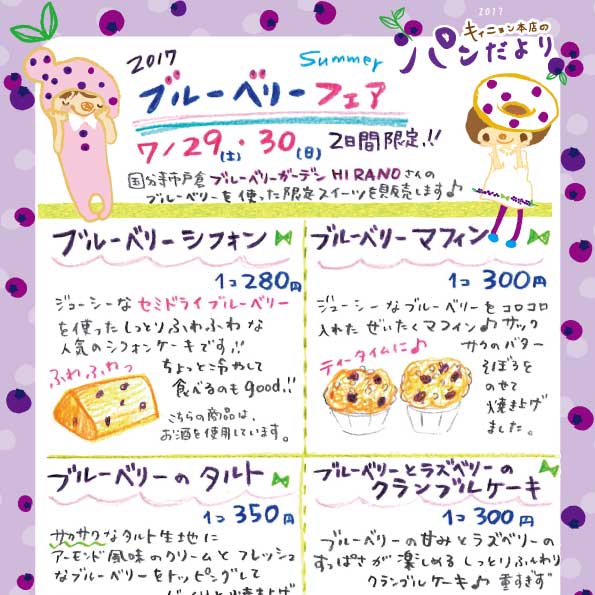 2017
キィニョン本店の
パンだより
2017 Summer
ブルーベリーフェア
7/29(土)・30(日) 2日間限定!!
国分寺市戸倉 ブルーベリーガーデンHIRANOさんの
ブルーベリーを使った限定スイーツを販売します♪
ブルーベリーシフォン
1コ 280円
ジューシーな セミドライブルーベリー
を使った しっとりふわふわな
人気のシフォンケーキです!!
ふわふわっ
ちょっと冷やして
食べるのもgood!!
こちらの商品は、
お酒を使用しています。
ブルーベリーマフィン
1コ 300円
ジューシーなブルーベリーをコロコロ
入れた ぜいたくマフィン♪ サック
サクのバター
そぼろを
のせて
焼き上げ
ました。
ティータイムに♪
ブルーベリーのタルト
1コ 350円
サクサクなタルト生地に
アーモンド風味のクリームと フレッシュ
なブルーベリーをトッピングして
ブルーベリーとラズベリーの
クランブルケーキ
1コ 300円
ブルーベリーの甘みとラズベリーの
すっぱさが 楽しめる しっとりふんわり
クランブルケーキ♪ 重すぎず